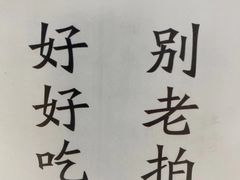 别老拍
好好吃